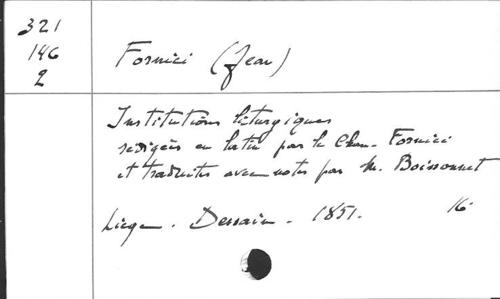 321
146
2
Fornici (Jean)
Institutions liturgiques
rédigées en latin par le Chan. Fornici
et traduites avec notes par M. Boissonnet
Liège. Dessain. 1851. 16°